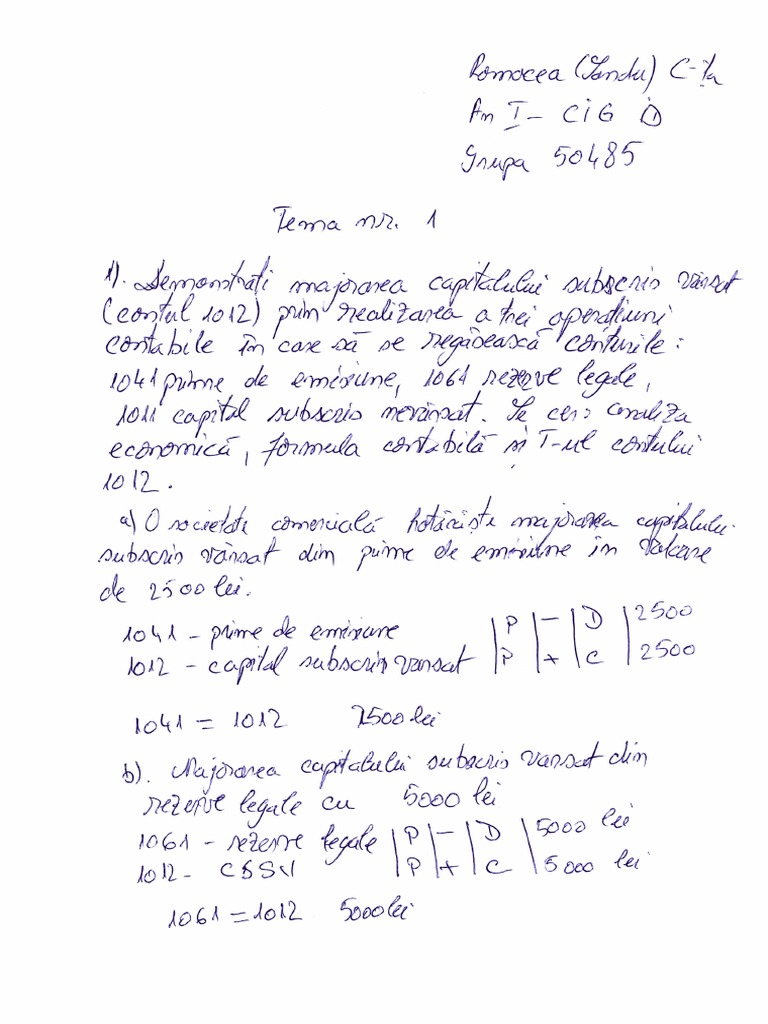 Romocea (Sandu) C-ța
An I - CIG ID
Grupa 50485
Tema nr. 1
1). Demonstrați majorarea capitalului subscris vărsat
(contul 1012) prin realizarea a trei operațiuni
contabile în care să se regăsească conturile:
1041 prime de emisiune, 1061 rezerve legale,
1011 capital subscris nevărsat. Se cer: analiza
economică, formula contabilă și T-ul contului
1012.
a) O societate comercială hotărăște majorarea capitalului
subscris vărsat din prime de emisiune în valoare
de 2500 lei.
1041 - prime de emisiune | P | - | D | 2500
1012 - capital subscris varsat | P | + | C | 2500
1041 = 1012 2500 lei
b). Majorarea capitalului subscris varsat din
rezerve legale cu 5000 lei
1061 - rezerve legale | P | - | D | 5000 lei
1012 - CSSV | P | + | C | 5000 lei
1061 = 1012 5000 lei